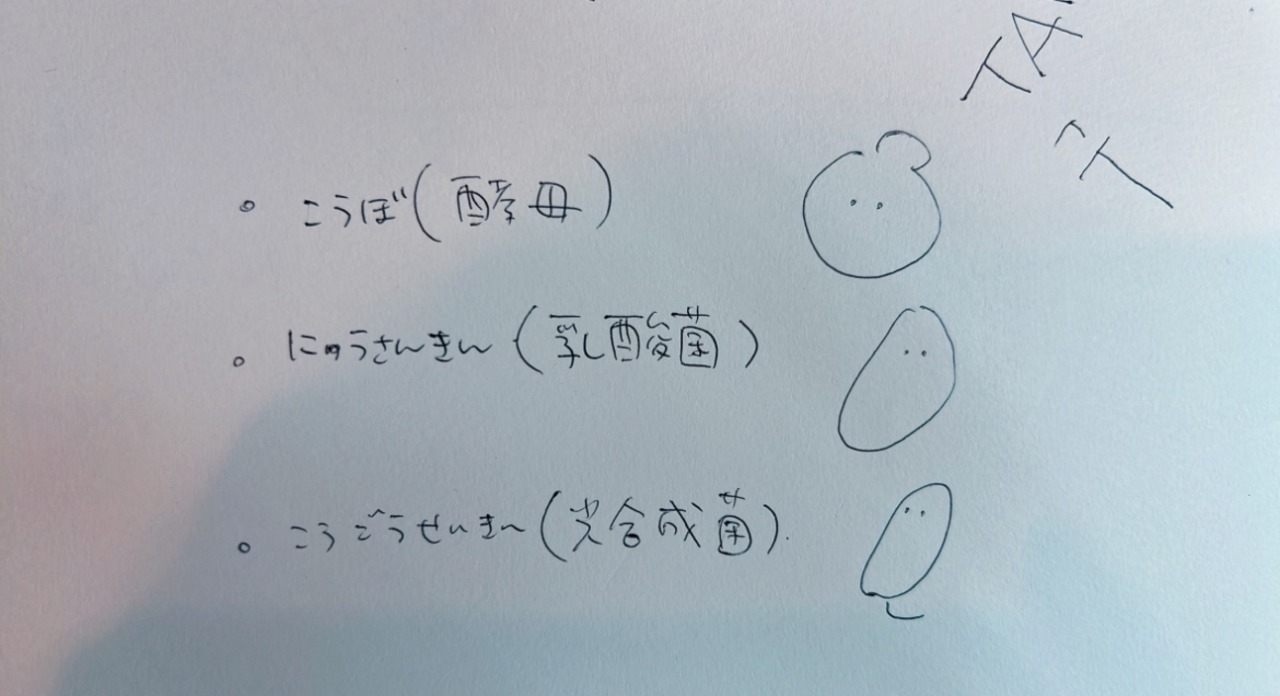 。こうぼ(酵母)
。にゅうさんきん(乳酸菌)
。こうごうせいきん(光合成菌).